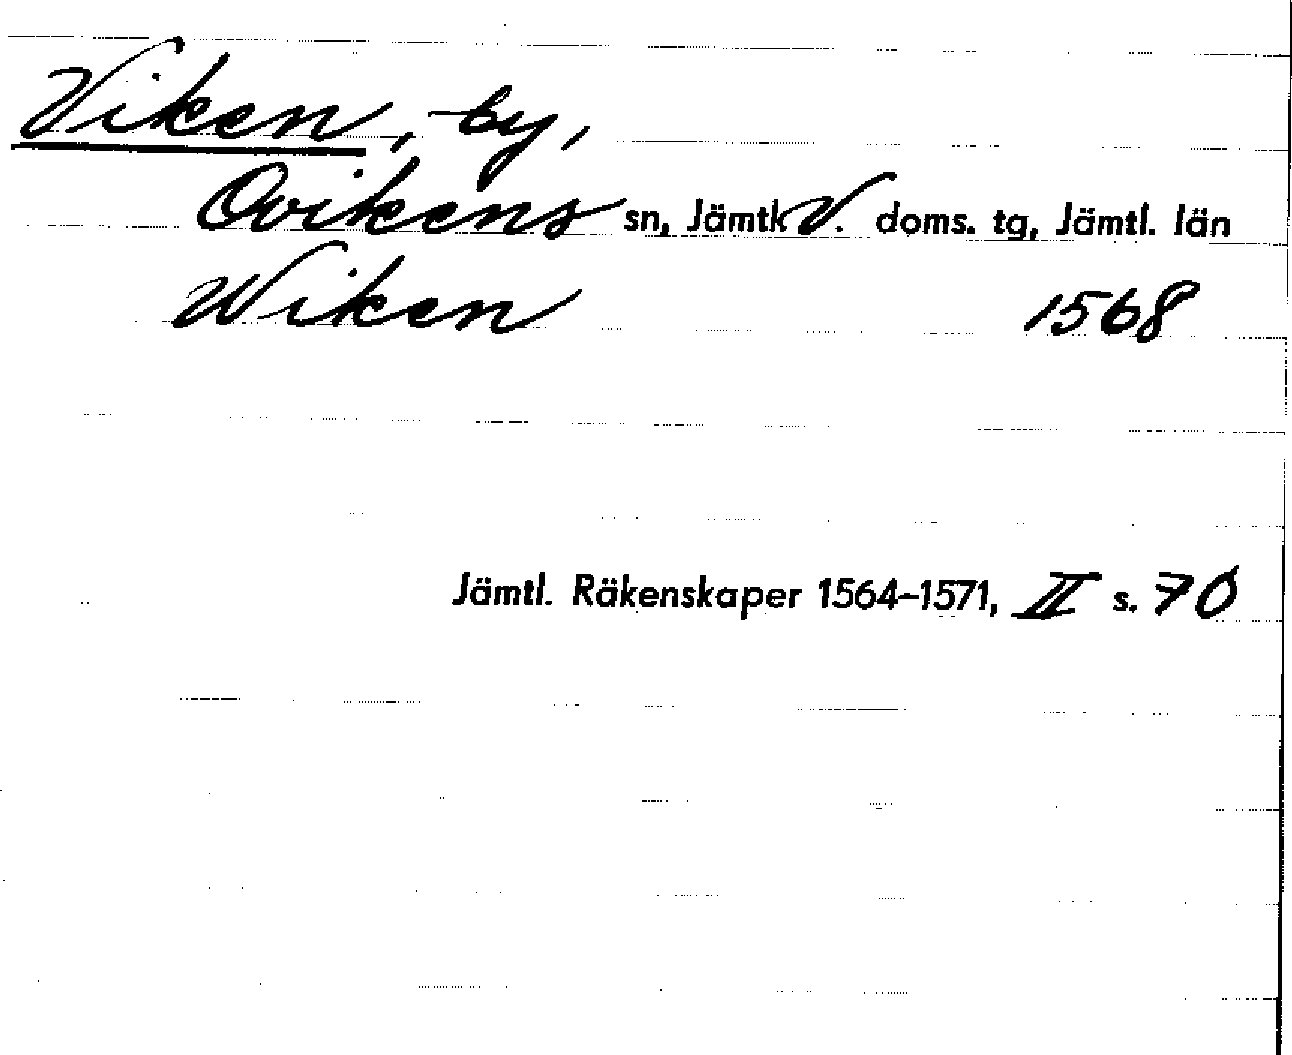 Viken, by,
Ovikens sn, Jämtl. V. doms. tg, Jämtl. län
Wiken 1568
Jämtl. Räkenskaper 1564-1571, II s. 70